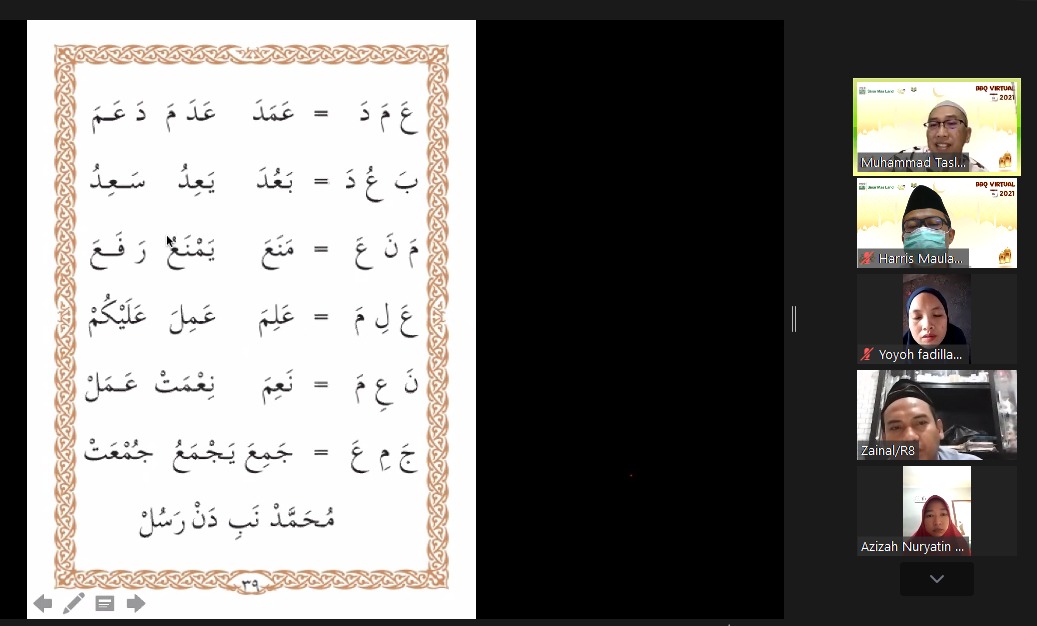 عَ مَ دَ = عَمَدَ عَدَ مَ دَ عَـمَ
بَ عُ دَ = بَعُدَ يَعِدُ سَـعِدُ
مَ نَ عَ = مَنَعَ يَمْنَعُ رَ فَـعَ
عَ لِ مَ = عَلِمَ عَمِلَ عَلَيْكُمْ
نَ عِ مَ = نَعِمَ نِعْمَتْ عَـمَلْ
جَ مِ عَ = جَمِعَ يَجْمَعُ جُمْعَتْ
مُحَمَّدْ نَبِ دَنْ رَسُلْ
٣٩
BBQ VIRTUAL
2021
Muhammad Tasl...
BBQ VIRTUAL
2021
Harris Maula...
Yoyoh fadilla...
Zainal/R8
Azizah Nuryatin ...